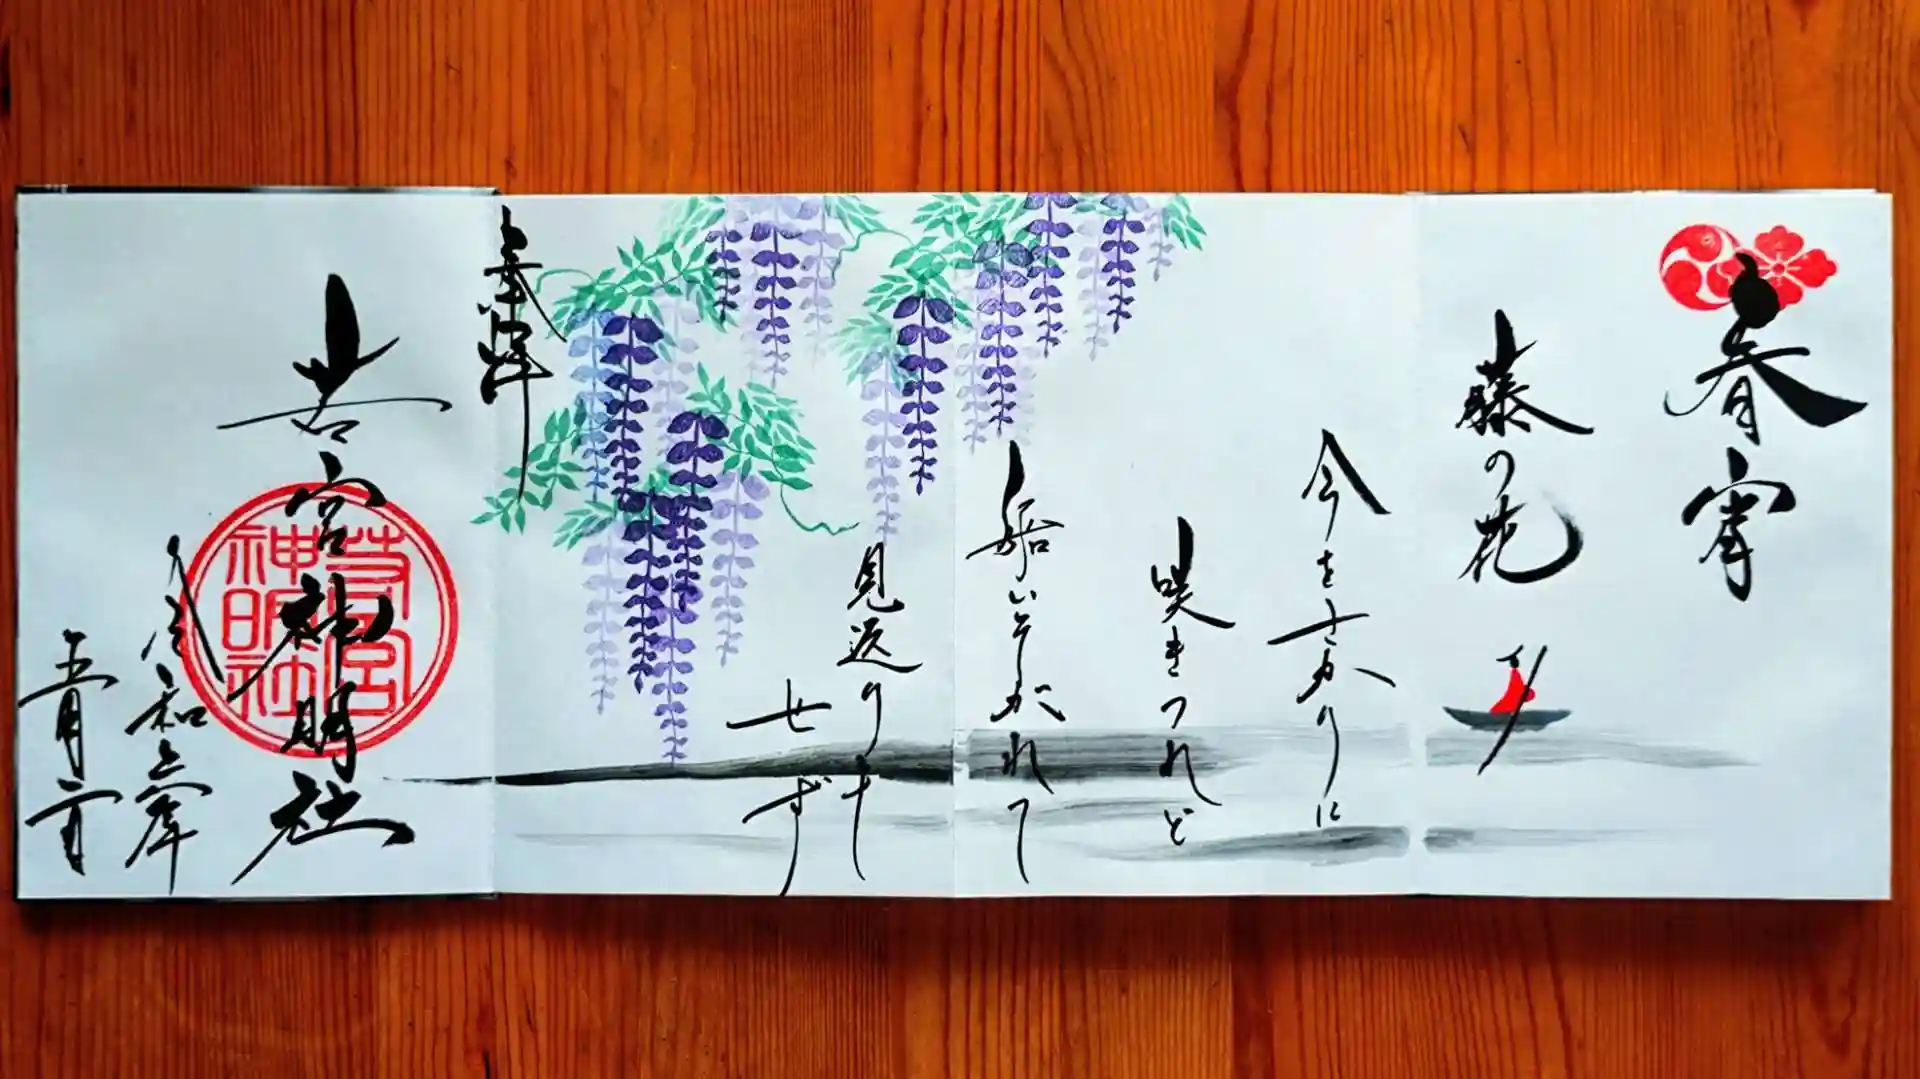 春宵
藤の花
今をさかりに
咲きつれど
船いそがれて
見返りも
せず
奉拝
若宮神明社
若宮
神明社
令和 年
五月 日